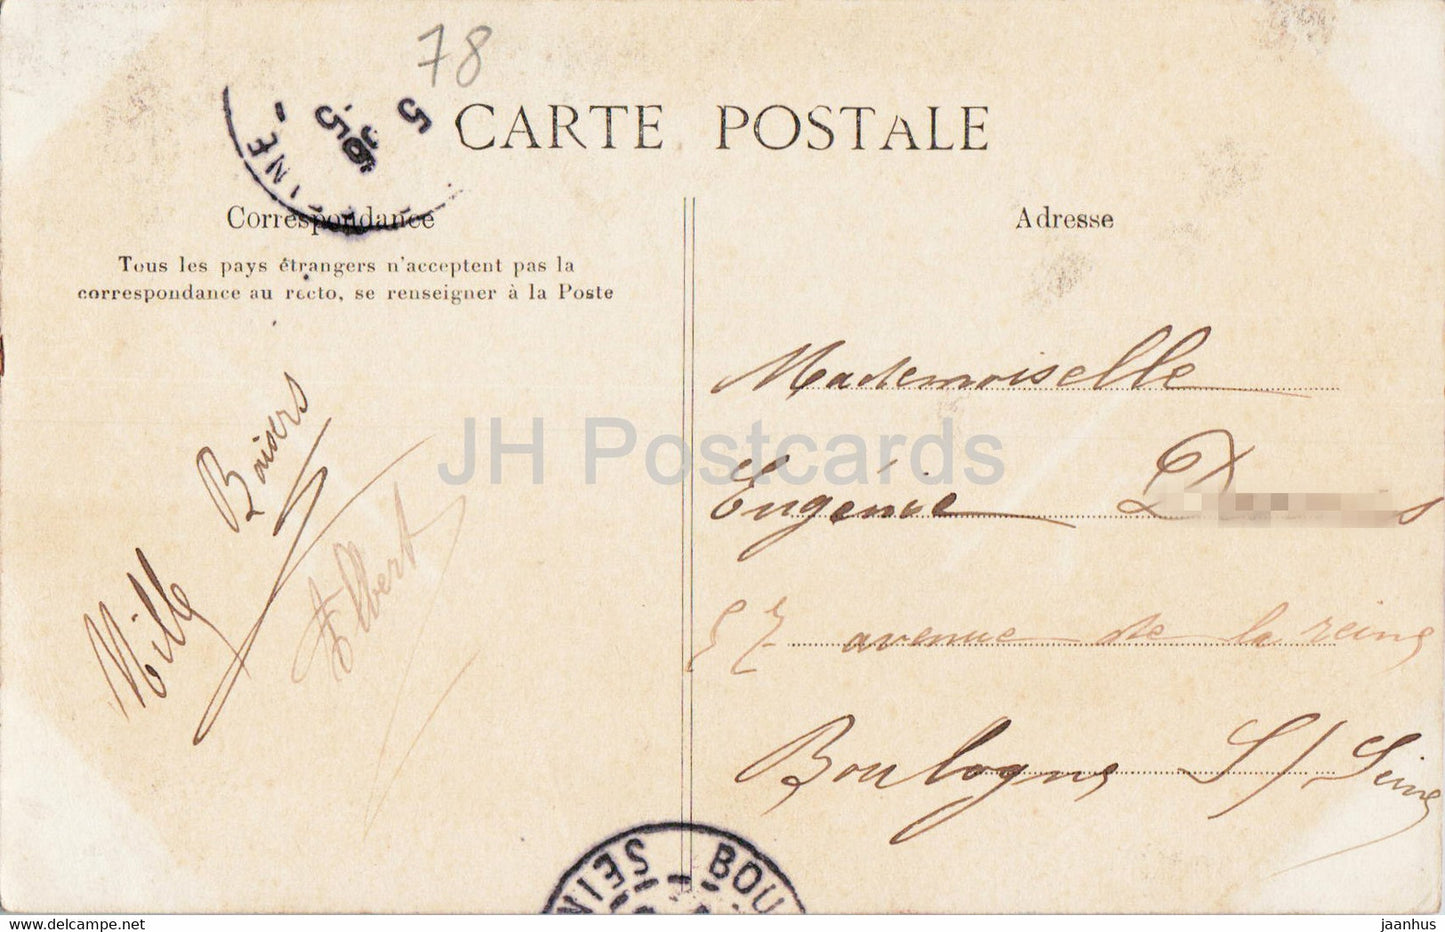 78
CARTE POSTALE
Correspondance
Tous les pays étrangers n'acceptent pas la
correspondance au recto, se renseigner à la Poste
Mille Baisers
Albert
Adresse
Mademoiselle
Eugénie D
57 avenue de la reine
Boulogne S/ Seine
INE
5
05
SEIN
BOU
JH Postcards
www.delcampe.net
jaanhus